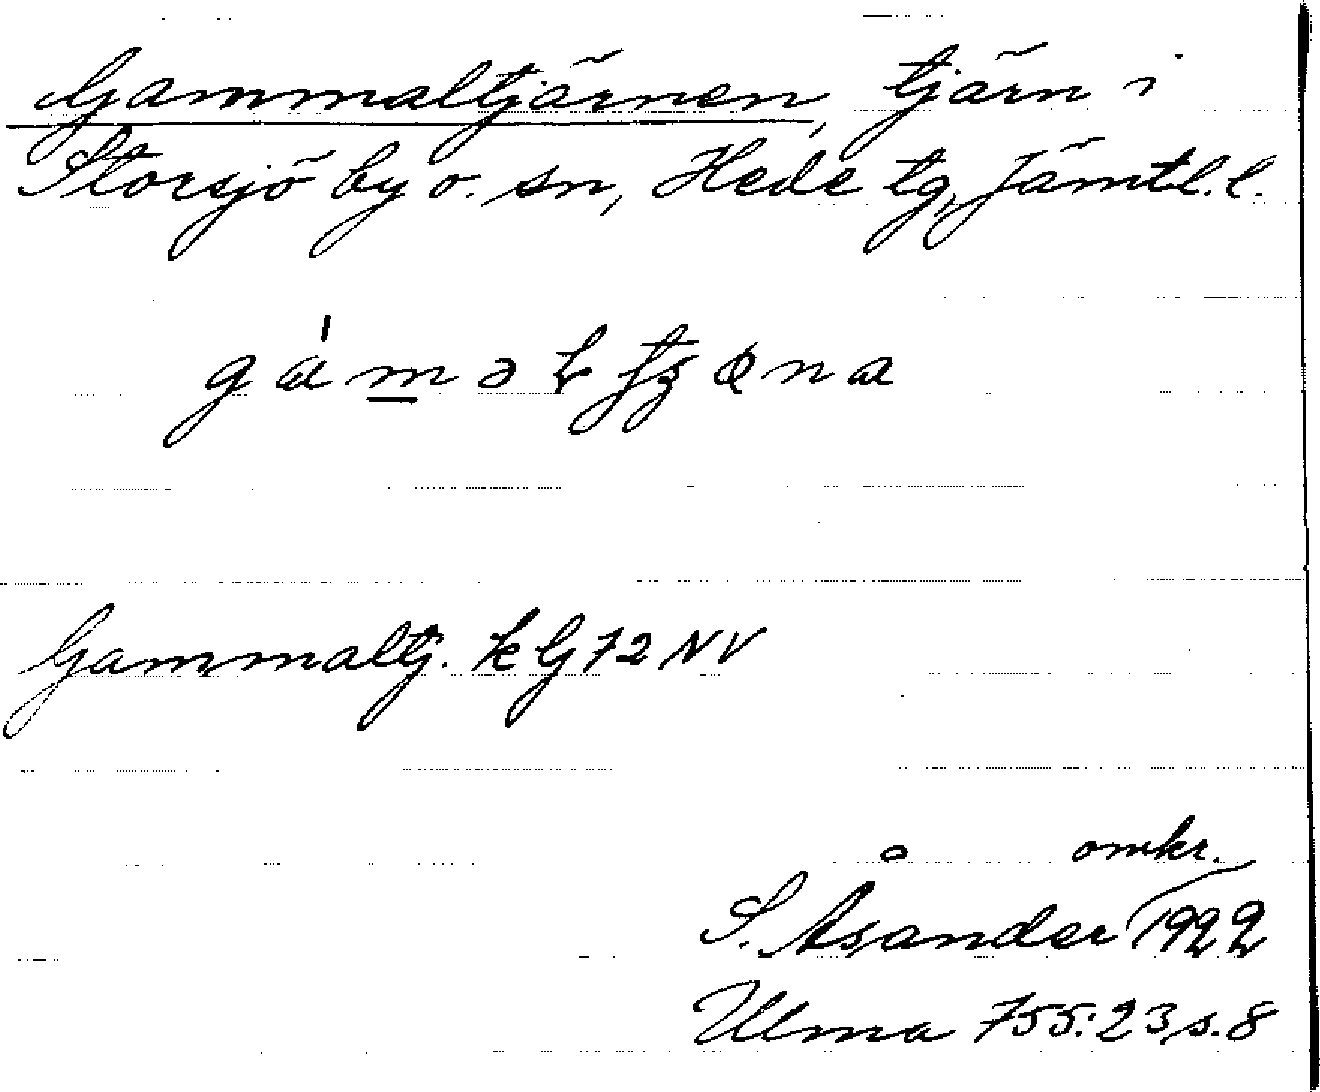 Gammaltjärnen, tjärn i
Storsjö by o. sn, Hede tg, Jämtl. l.
Gammaltj. k G 72 NV
omkr.
S. Åsander 1922
Ulma 755:23, s. 8